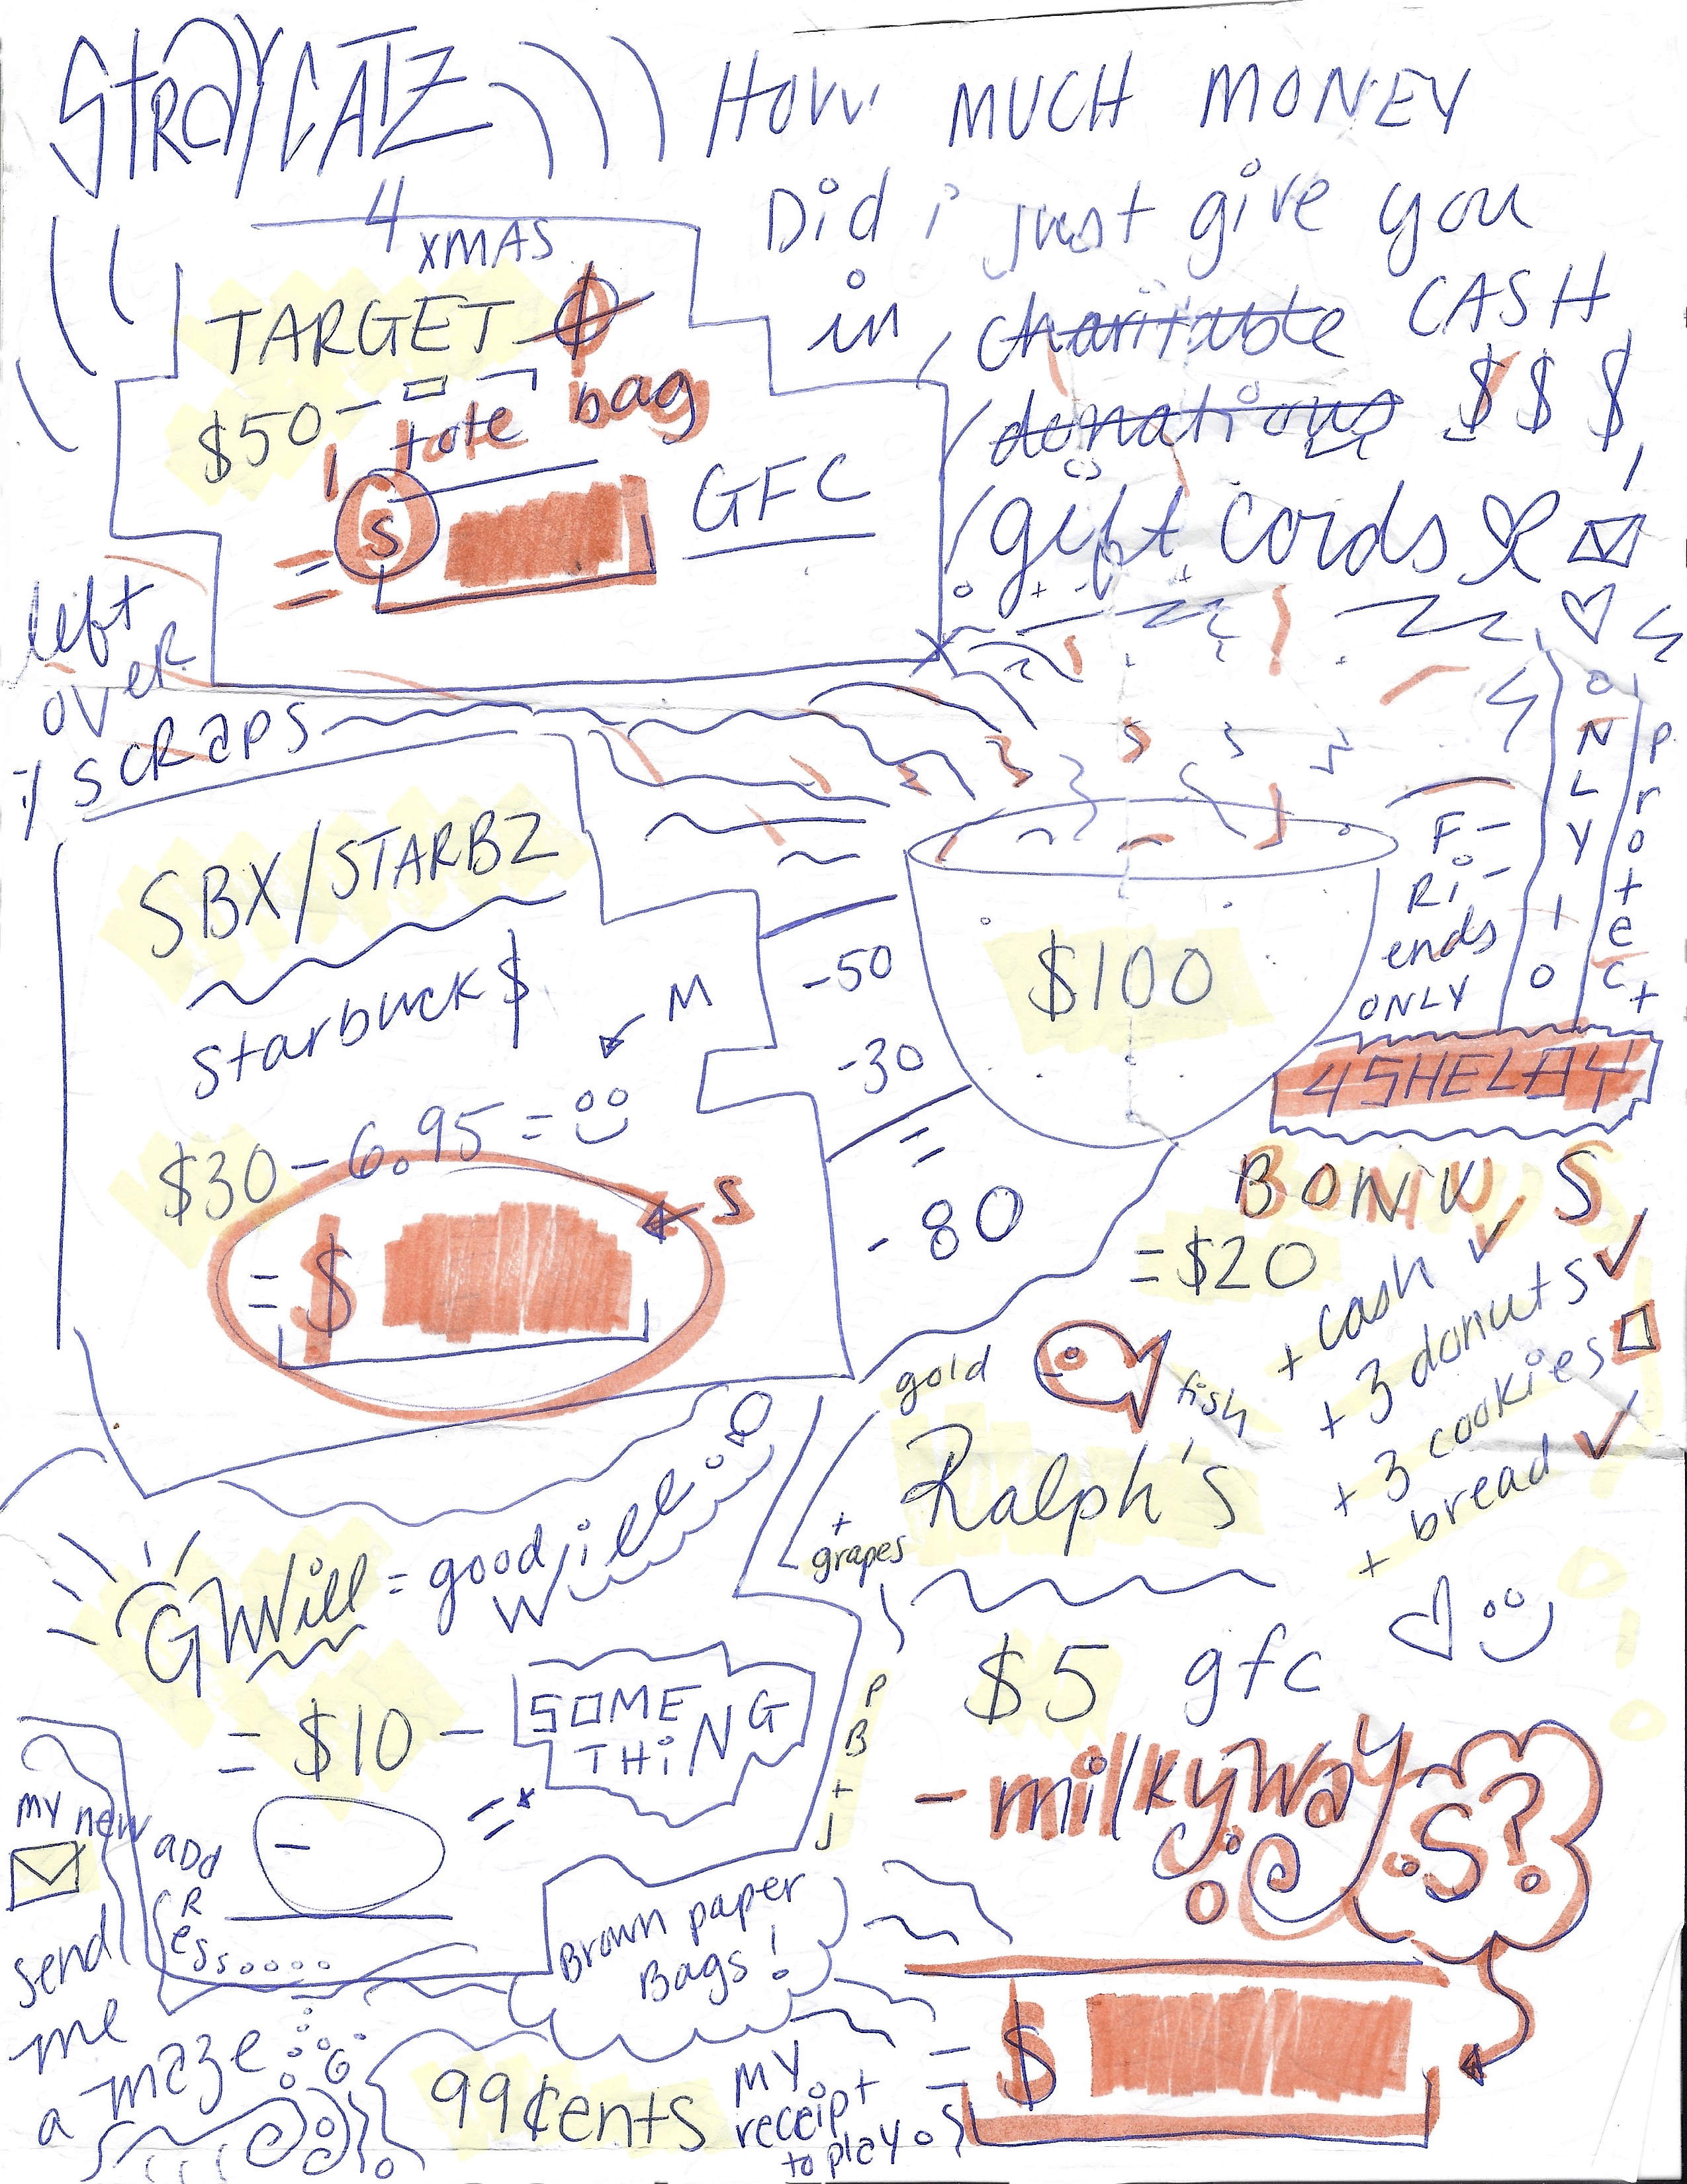 STRAYCATZ
HOW MUCH MONEY
Did i just give you
in charitable CASH
donations $$$,
gift cards
4 XMAS
TARGET
$50 -
1 tote bag
= $
GFC
left
over
SCRAPS
SBX/STARBZ
Starbuck$
M
$30 - 6.95 =
= $
S
-50
-30
=
- 80
$100
F-
Ri-
ends
ONLY
ONLY 10
protect
4SHELBY
BONUS
= $20
+ cash ✓
+ 3 donuts ✓
+ 3 cookies
+ bread ✓
gold
fish
Ralph's
+
grapes
$5 gfc
- milkyway
S?
= $
GWill = goodwill
= $10 -
SOME
THING
=*
-
PB+J
my new
add
Ress....
send
me
a maze
Brown paper
Bags!
99¢ents
my
receipt
to play